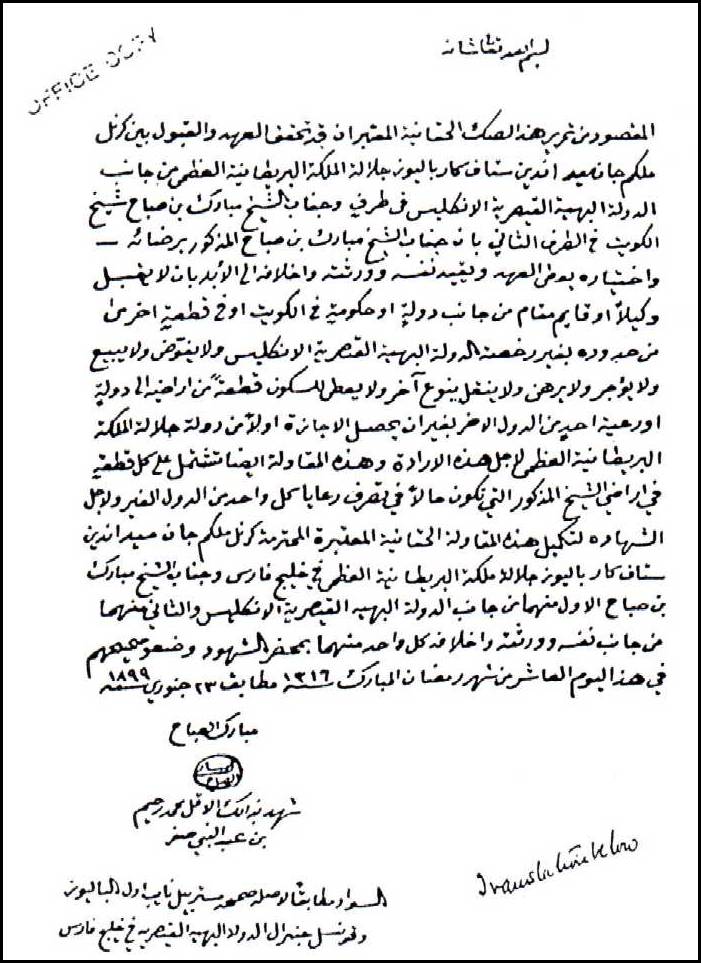 OFFICE COPY
بسم الله تعالى شانه
المقصود من تحرير هذا الصك الحقانية المعتبر ان قد تحقق العهد والقبول بين كرنل
ملكم جان ميد اندين ستاف كار باليوز جلالة الملكة البريطانية العظمى من جانب
الدولة البهية القيصرية الانكليس في طرفٍ وجناب الشيخ مبارك بن صباح شيخ
الكويت في الطرف الثاني بان جناب الشيخ مبارك بن صباح المذكور برضائه
واختياره يعطى العهد ويقيد نفسه وورثته واخلافه الى الأبد بان لا يقبل
وكيلاً او قايم مقام من جانب دولةٍ او حكومةٍ في الكويت او في قطعةٍ اخرىٰ
من حدوده بغير رخصة الدولة البهية القيصرية الانكليس ولا يفوّض ولا يبيع
ولا يؤجر ولا يرهن ولا ينقل بنوع آخر ولا يعطى للسكون قطعةً من اراضيه الى دولةٍ
او رعية احدٍ من الدول الاخر بغير ان يحصل الاجازة اولاً من دولة جلالة الملكة
البريطانية العظمى لاجل هذه الارادة وهذه المقاولة ايضا تشتمل على كل قطعةٍ
في اراضي الشيخ المذكور التي تكون حالاً في تصرف رعايا كل واحد من الدول الغير ولاجل
الشهاده لتكميل هذه المقاولة الحقانية المعتبرة المحترمة كرنل ملكم جان ميد اندين
ستاف كار باليوز جلالة ملكة البريطانية العظمى في خليج فارس وجناب الشيخ مبارك
بن صباح الاول منهما من جانب الدولة البهيه القيصرية الانكليس والثاني منهما
من جانب نفسه وورثته واخلافه كل واحد منهما بمحضر الشهود وضعو صحيحهم
في هذا اليوم العاشر من شهر رمضان المبارك سنة ١٣١٦ مطابق ٢٣ جنوري سنة ١٨٩٩
مبارك الصباح
مبارك الصباح
شهد بذالك الاقل محمد رحيم
بن عبد النبي صفر
Translation below
السواد مطابقاً لاصله
نايب اول الباليوز
وقونسل جنرال الدولة البهية القيصرية في خليج فارس